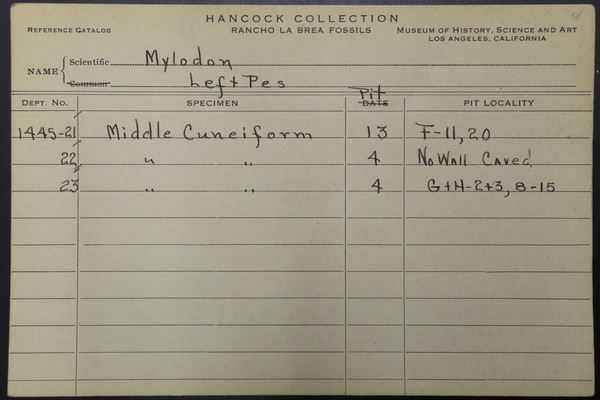 4
HANCOCK COLLECTION
REFERENCE CATALOG RANCHO LA BREA FOSSILS MUSEUM OF HISTORY, SCIENCE AND ART
LOS ANGELES, CALIFORNIA
NAME { Scientific Mylodon
Common Left Pes
Pit
DEPT. NO. SPECIMEN DATE PIT LOCALITY
1445-21 Middle Cuneiform 13 F-11, 20
22 " " 4 No Wall Caved
23 " " 4 G+H-2+3, 8-15